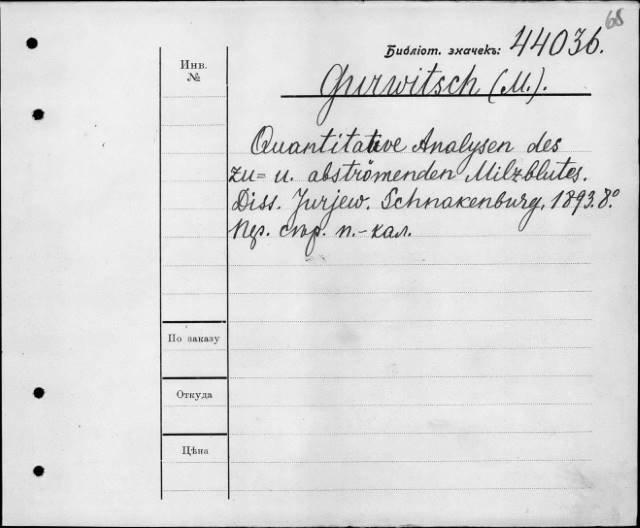 68
Библіот. значекъ: 44036.
Инв.
№
Gurwitsch (M.).
Quantitative Analysen des
zu= u. abströmenden Milzblutes.
Diss. Jurjew. Schnakenburg, 1893. 8.º
стр. п.-кал.
По заказу
Откуда
Цѣна